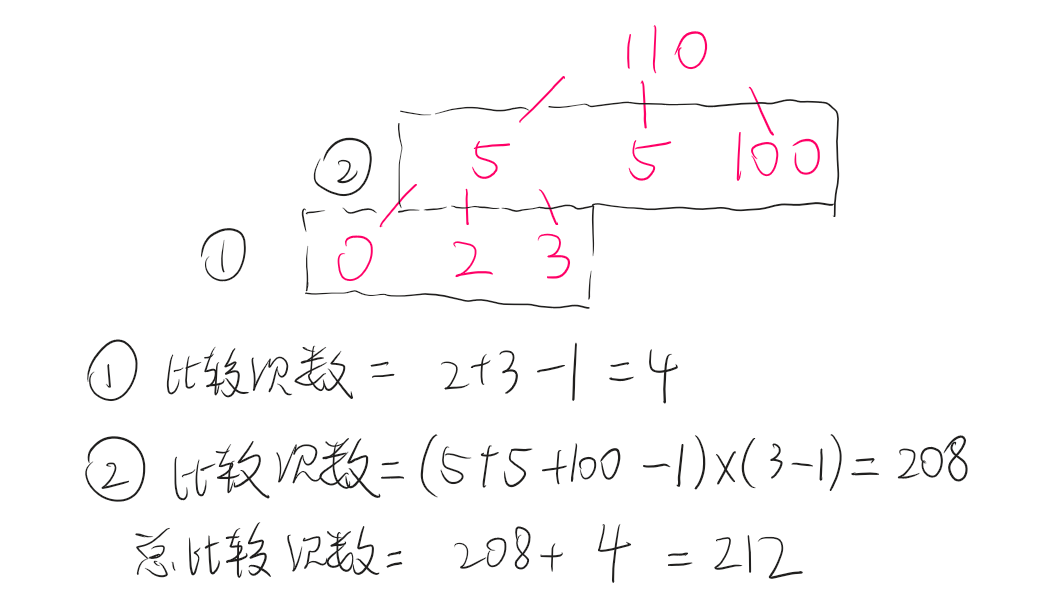 110
② 5 5 100
① 0 2 3
① 比较次数 = 2+3-1=4
② 比较次数=(5+5+100-1)×(3-1)=208
总比较次数= 208+4=212